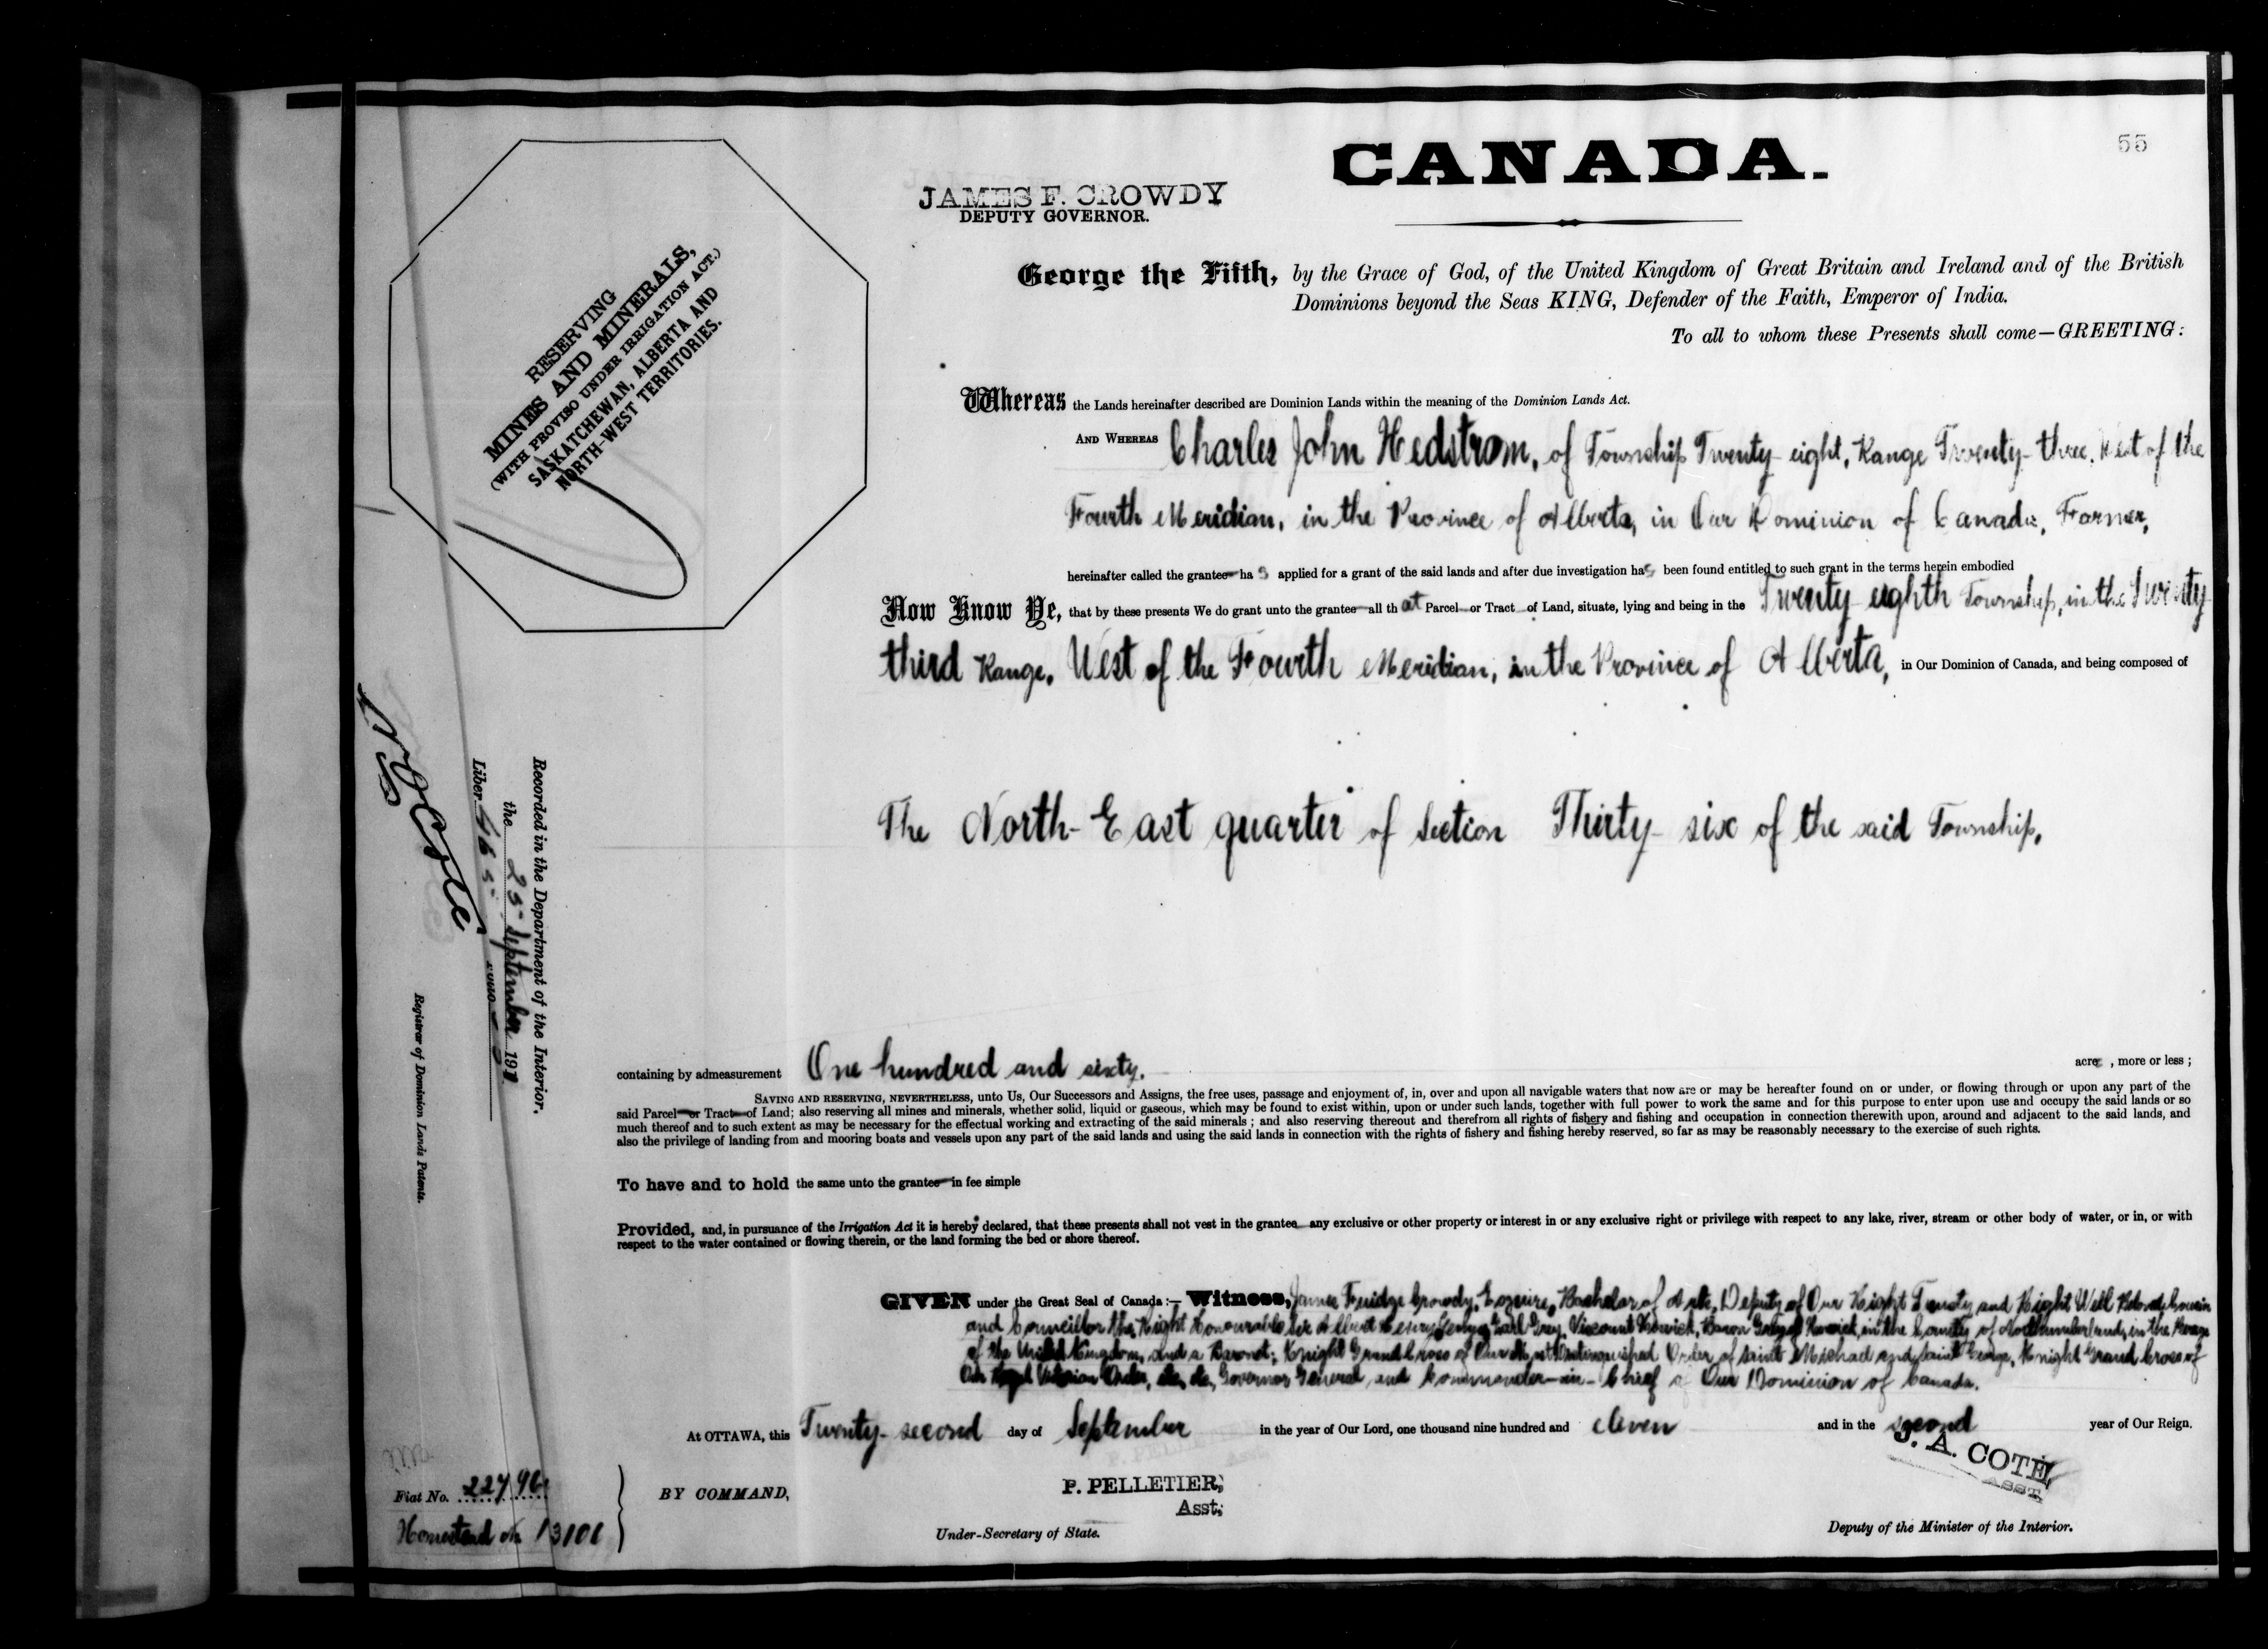 55
CANADA.
JAMES F. CROWDY
DEPUTY GOVERNOR.
George the Fifth, by the Grace of God, of the United Kingdom of Great Britain and Ireland and of the British
Dominions beyond the Seas KING, Defender of the Faith, Emperor of India.
To all to whom these Presents shall come—GREETING:
RESERVING
MINES AND MINERALS,
(WITH PROVISO UNDER IRRIGATION ACT.)
SASKATCHEWAN, ALBERTA AND
NORTH-WEST TERRITORIES.
Whereas the Lands hereinafter described are Dominion Lands within the meaning of the Dominion Lands Act.
AND WHEREAS Charles John Hedstrom, of Township Twenty-eight, Range Twenty-three, West of the
Fourth Meridian, in the Province of Alberta, in Our Dominion of Canada, Farmer,
hereinafter called the grantee has applied for a grant of the said lands and after due investigation has been found entitled to such grant in the terms herein embodied
Now Know Ye, that by these presents We do grant unto the grantee all that Parcel or Tract of Land, situate, lying and being in the Twenty-eighth Township, in the Twenty-
third Range, West of the Fourth Meridian, in the Province of Alberta, in Our Dominion of Canada, and being composed of
The North-East quarter of Section Thirty-six of the said Township,
containing by admeasurement One hundred and sixty. acres, more or less;
SAVING AND RESERVING, NEVERTHELESS, unto Us, Our Successors and Assigns, the free uses, passage and enjoyment of, in, over and upon all navigable waters that now are or may be hereafter found on or under, or flowing through or upon any part of the
said Parcel or Tract of Land; also reserving all mines and minerals, whether solid, liquid or gaseous, which may be found to exist within, upon or under such lands, together with full power to work the same and for this purpose to enter upon use and occupy the said lands or so
much thereof and to such extent as may be necessary for the effectual working and extracting of the said minerals; and also reserving thereout and therefrom all rights of fishery and fishing and occupation in connection therewith upon, around and adjacent to the said lands, and
also the privilege of landing from and mooring boats and vessels upon any part of the said lands and using the said lands in connection with the rights of fishery and fishing hereby reserved, so far as may be reasonably necessary to the exercise of such rights.
To have and to hold the same unto the grantee in fee simple
Provided, and, in pursuance of the Irrigation Act it is hereby declared, that these presents shall not vest in the grantee any exclusive or other property or interest in or any exclusive right or privilege with respect to any lake, river, stream or other body of water, or in, or with
respect to the water contained or flowing therein, or the land forming the bed or shore thereof.
GIVEN under the Great Seal of Canada:— Witness, James Crowdy, Esquire, Bachelor of Arts, Deputy of Our Right Trusty and Right Well Beloved Cousin
and Councillor the Right Honourable Sir Albert Henry George Earl Grey, Viscount Howick, Baron Grey of Howick, in the County of Northumberland, in the Peerage
of the United Kingdom, and a Baronet; Knight Grand Cross of Our Most Distinguished Order of Saint Michael and Saint George, Knight Grand Cross of
Our Royal Victorian Order, &c., &c., Governor General and Commander-in-Chief of Our Dominion of Canada.
At OTTAWA, this Twenty-second day of September in the year of Our Lord, one thousand nine hundred and eleven and in the second year of Our Reign.
BY COMMAND,
P. PELLETIER,
Asst.
Under-Secretary of State.
J. A. COTE
ASST.
Deputy of the Minister of the Interior.
Recorded in the Department of the Interior,
the 25 September 1911
Liber 465
N O Coté
Registrar of Dominion Lands Patents.
Fiat No. 22796
Homestead No 13101